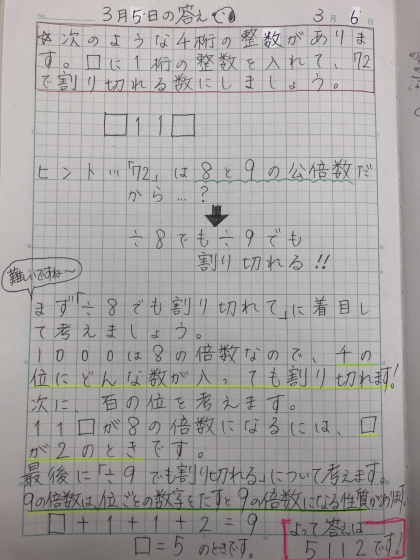 No.
3月5日の答え
3月6日
☆次のような4桁の整数がありま
す。□に1桁の整数を入れて、72
で割り切れる数にしましょう。
□11□
ヒント…「72」は8と9の公倍数だ
から…?
÷8でも÷9でも
割り切れる!!
難しいですね〜
まず「÷8でも割り切れて」に着目し
て考えましょう。
1000は8の倍数なので、千の
位にどんな数が入っても割り切れます!
次に、百の位を考えます。
11□が8の倍数になるには、□
が2のときです。
最後に「÷9でも割り切れる」について考えます。
9の倍数は、位ごとの数字をたすと9の倍数になる性質があります。
□+1+1+2=9
□=5のときです。
よって答えは
5112です!